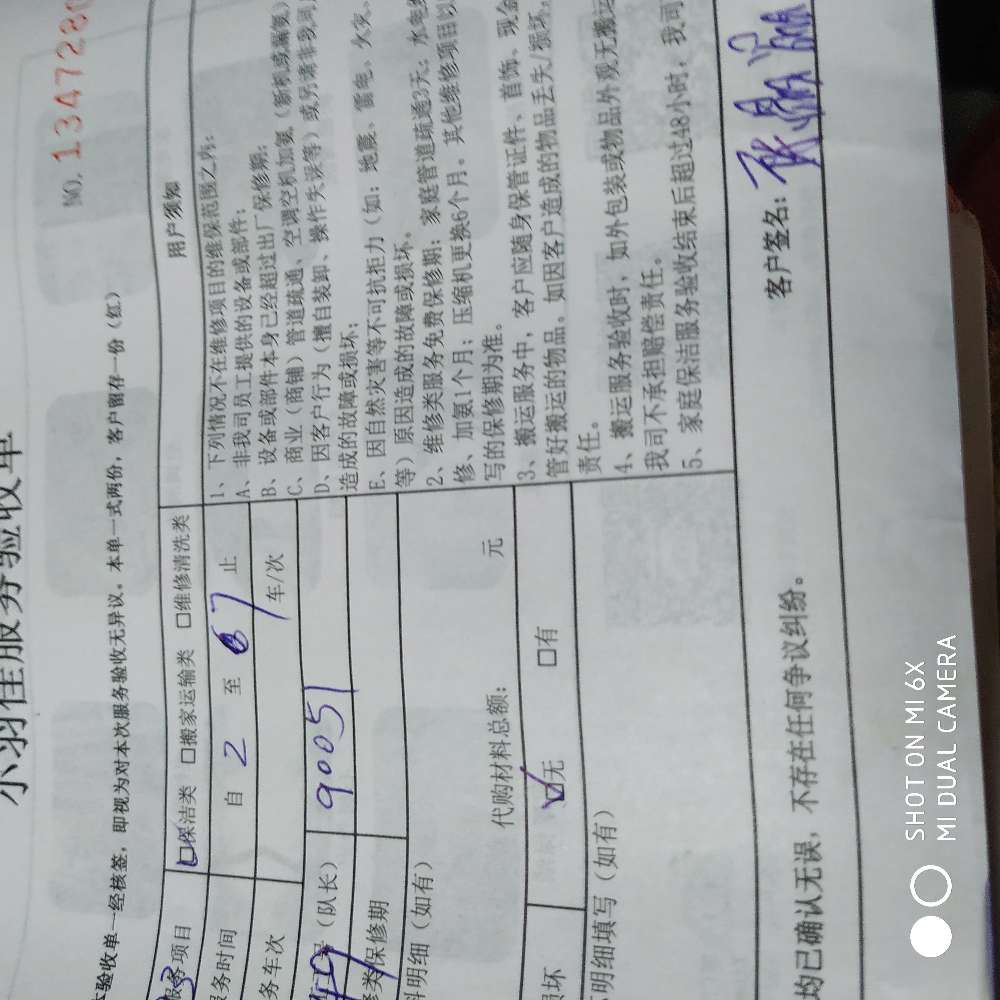 小羽佳服务验收单
NO. 1347280
本验收单一经核签，即视为对本次服务验收无异议。本单一式两份，客户留存一份（红）
服务项目 □保洁类 □搬家运输类 □维修清洗类
服务时间 自 2 至 67 止
务车次 车/次
（队长） 90051
修类保修期
料明细（如有）
代购材料总额： 元
损坏 ☑无 □有
明细填写（如有）
用户须知
1、下列情况不在维修项目的维保范围之内：
A、非我司员工提供的设备或部件；
B、设备或部件本身已经超过出厂保修期；
C、商业（商铺）管道疏通、空调空机加氨（新机或漏氨）
D、因客户行为（擅自装卸、操作失误等）或另请非我司
造成的故障或损坏；
E、因自然灾害等不可抗拒力（如：地震、雷电、火灾、
等）原因造成的故障或损坏。
2、维修类服务免费保修期：家庭管道疏通3天；水电维
修、加氨1个月；压缩机更换6个月。其他维修项目以
写的保修期为准。
3、搬运服务中，客户应随身保管证件、首饰、现金
管好搬运的物品。如因客户造成的物品丢失/损坏，
责任。
4、搬运服务验收时，如外包装或物品外观无搬运
我司不承担赔偿责任。
5、家庭保洁服务验收结束后超过48小时，我司
均已确认无误，不存在任何争议纠纷。 客户签名：
SHOT ON MI 6X
MI DUAL CAMERA